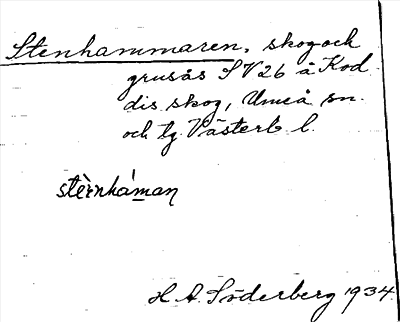 Stenhammaren, skog och
grusås S V 26 å Kod
dis skog, Umeå sn.
och tg Västerb. l.
stèrnháman
H. A. Söderberg 1934.